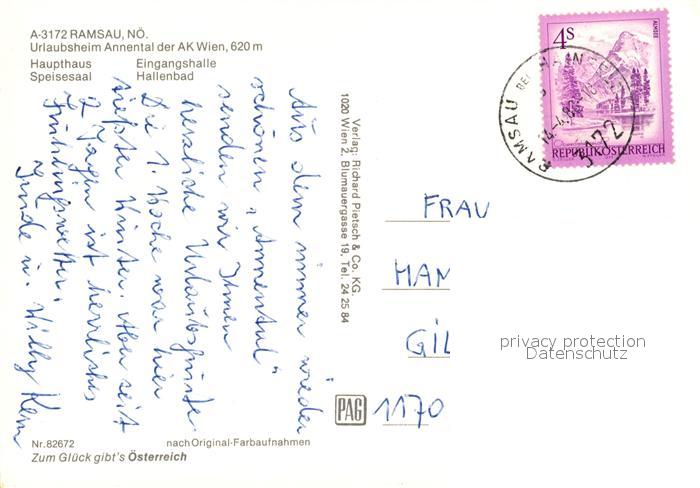 A-3172 RAMSAU, NÖ.
Urlaubsheim Annental der AK Wien, 620 m
Haupthaus Eingangshalle
Speisesaal Hallenbad
Aus dem immer wieder
schönen „Annental"
senden wir Ihnen
herzliche Urlaubsgrüße.
Die 1. Woche war hier
tiefster Winter. Aber seit
2 Tagen ist herrliches
Frühlingswetter.
u. Willy
Verlag: Richard Pietsch & Co. KG.
1020 Wien 2, Blumauergasse 19, Tel. 24 25 84
4S
ALMSEE
REPUBLIK ÖSTERREICH
RAMSAU BEI HAINFELD
3172
FRAU
HAN
GIL
privacy protection
Datenschutz
PAG
1170
Nr. 82672 nach Original-Farbaufnahmen
Zum Glück gibt's Österreich